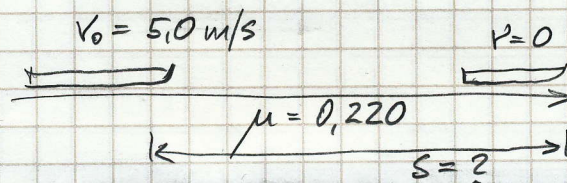 V₀ = 5,0 m/s
V = 0
μ = 0,220
s = ?